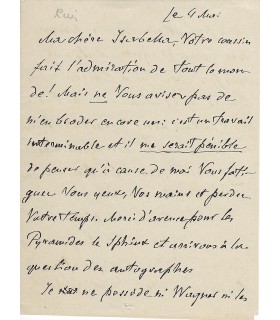 Le 4 Mai
Ma chère Isabella, Votre coussin
fait l'admiration de tout le mon-
de! Mais ne Vous avisez pas de
m'en broder encore un: c'est un travail
interminable et il me serait pénible
de penser qu'à cause de moi Vous fati-
guez Vous yeux, Vos mains et perdez
Votre temps. Merci d'avance pour les
Pyramides le Sphinx et arrivons à la
question des autographes
Je ne possède ni Wagner ni les